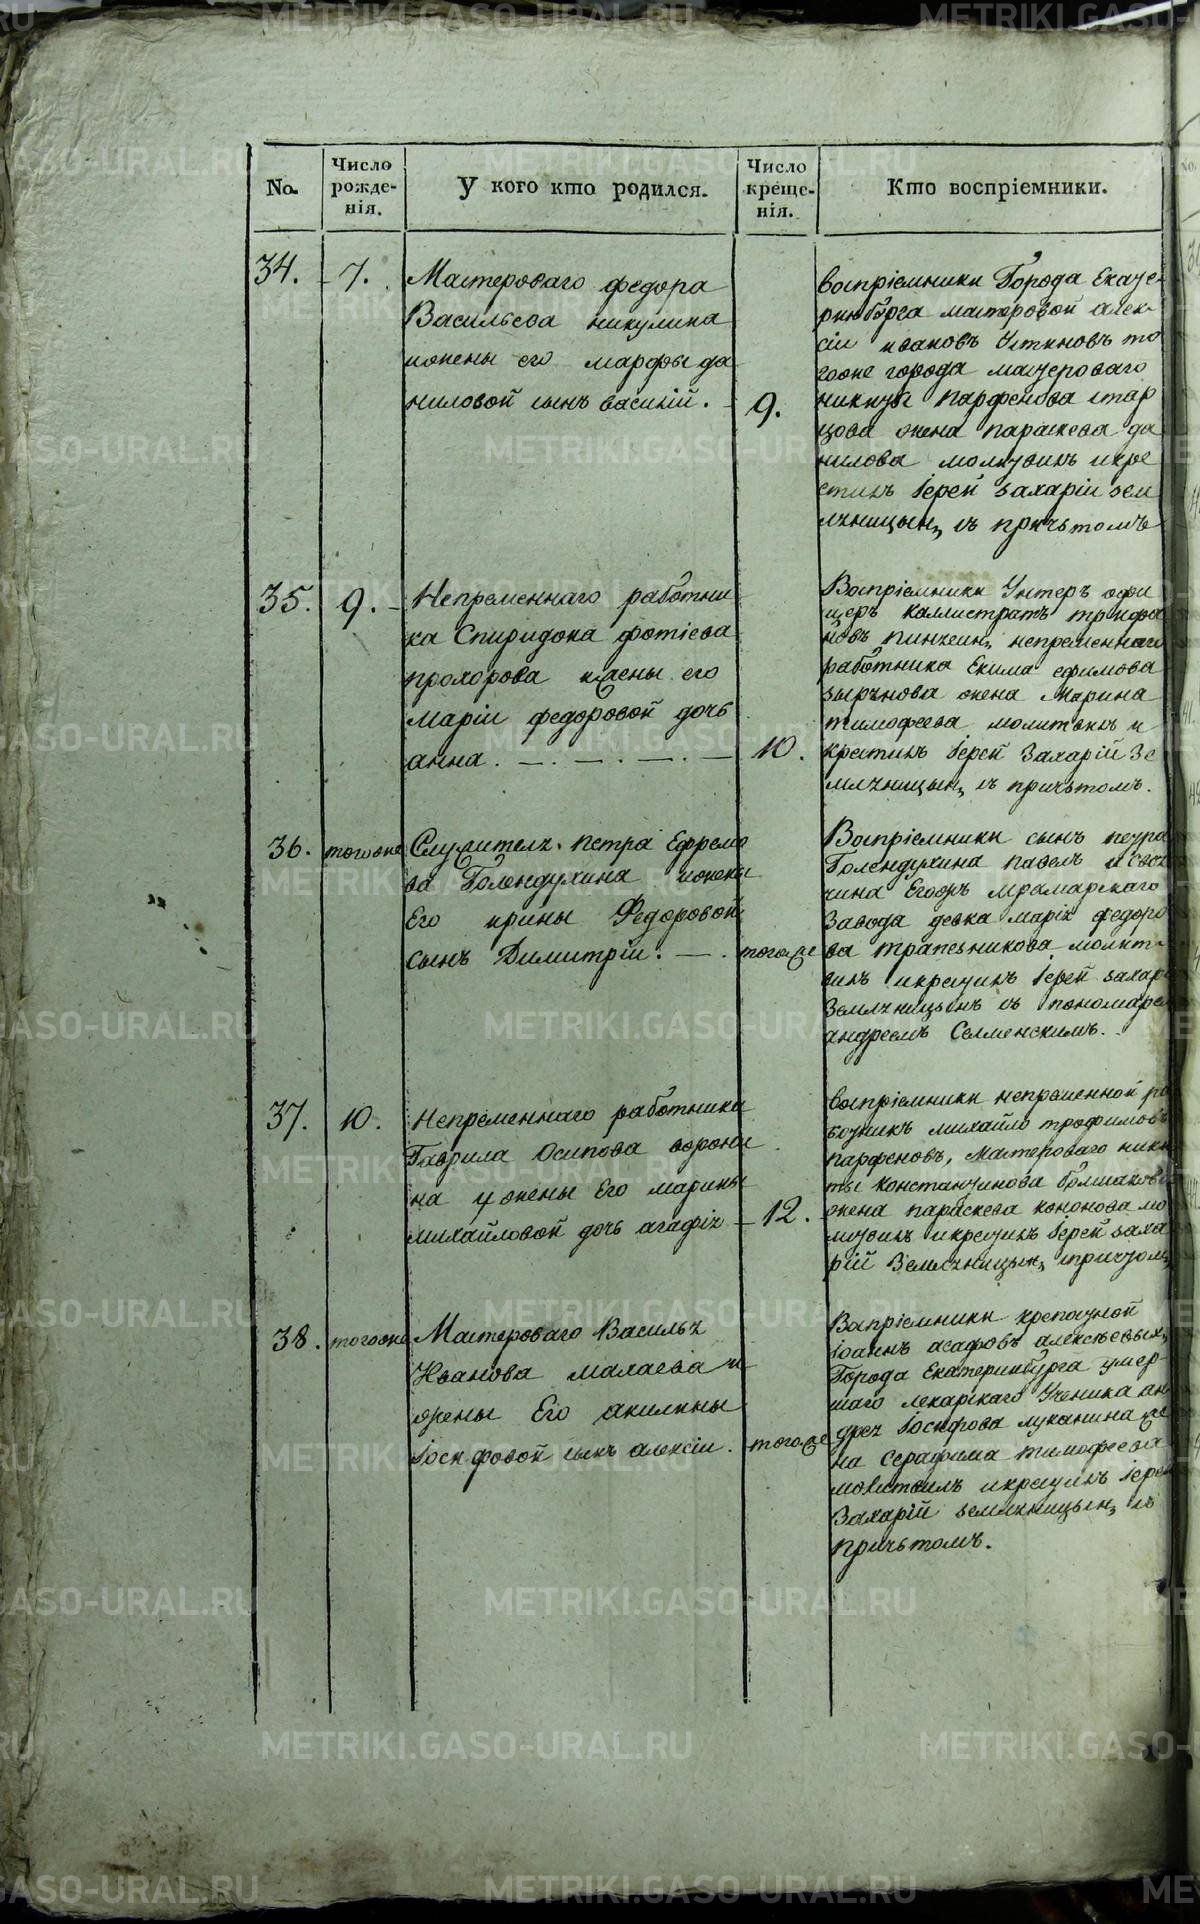 No.
Число рожде- нія.
У кого кто родился.
Число креще- нія.
Кто воспріемники.
34.
7.
Мастероваго федора
Васильева никулина
ижены его марфы да
ниловой сынъ василій.
9.
воспріемники Города Екате-
ринбурга мастеровой алек-
сіи ивановъ Устиновъ то
гоже города мастероваго
никиты парфенова стар
цова жена параскева да
нилова молитвилъ икре
стилъ іерей захаріи зем
лѧницынъ съ причьтомъ
35.
9.
Непременнаго работни
ка Спиридона фотіева
прохорова ижены его
Маріи федоровой дочь
анна.
10.
Воспріемники Унтеръ офи
церъ каллистратъ трифо
новъ пинженинъ, непременнаго
работника Екима ефимова
зырѧнова жена Марина
тимофеева молитвилъ и
крестилъ іерей Захарій Зе
млѧницынъ съ причьтомъ.
36.
тогоже
Служителѧ петра Ефремо
ва Голендухина ижены
Его ирины Федоровой
сынъ Димитрій.
тогоже
Воспріемники сынъ петра
Голендухина павелъ и
чина Егоръ мрамарскаго
Завода девка маріѧ федоро
ва трапезникова молит-
вилъ икрестилъ іерей захарій
Землѧницынъ съ пономарем
андреемъ Селменскимъ.
37.
10.
Непременнаго работника
Гаврила Осипова ворони
на у жены Его марины
михайловой дочь агафіѧ
12.
воспріемники непременной ра
ботникъ михайло трофимовъ
парфеновъ, Мастероваго ники
ты константинова болшакова
жена параскева кононова мо
литвилъ икрестилъ іерей заха
рій Землѧницынъ, спричтомъ
38.
тогоже
Мастероваго Васильѧ
Иванова малаева и
жены Его акилины
іосифовой сынъ алексіи.
тогоже
Воспріемники крепостной
іоаннъ асафовъ алексеевыхъ,
Города Екатеринбурга умер-
шаго лекарскаго Ученика ан
дреѧ іосифова луканина же
на Серафима тимофеева
молитвилъ икрестилъ іерей
Захарій землѧницынъ съ
причьтомъ.
METRIKI.GASO-URAL.RU